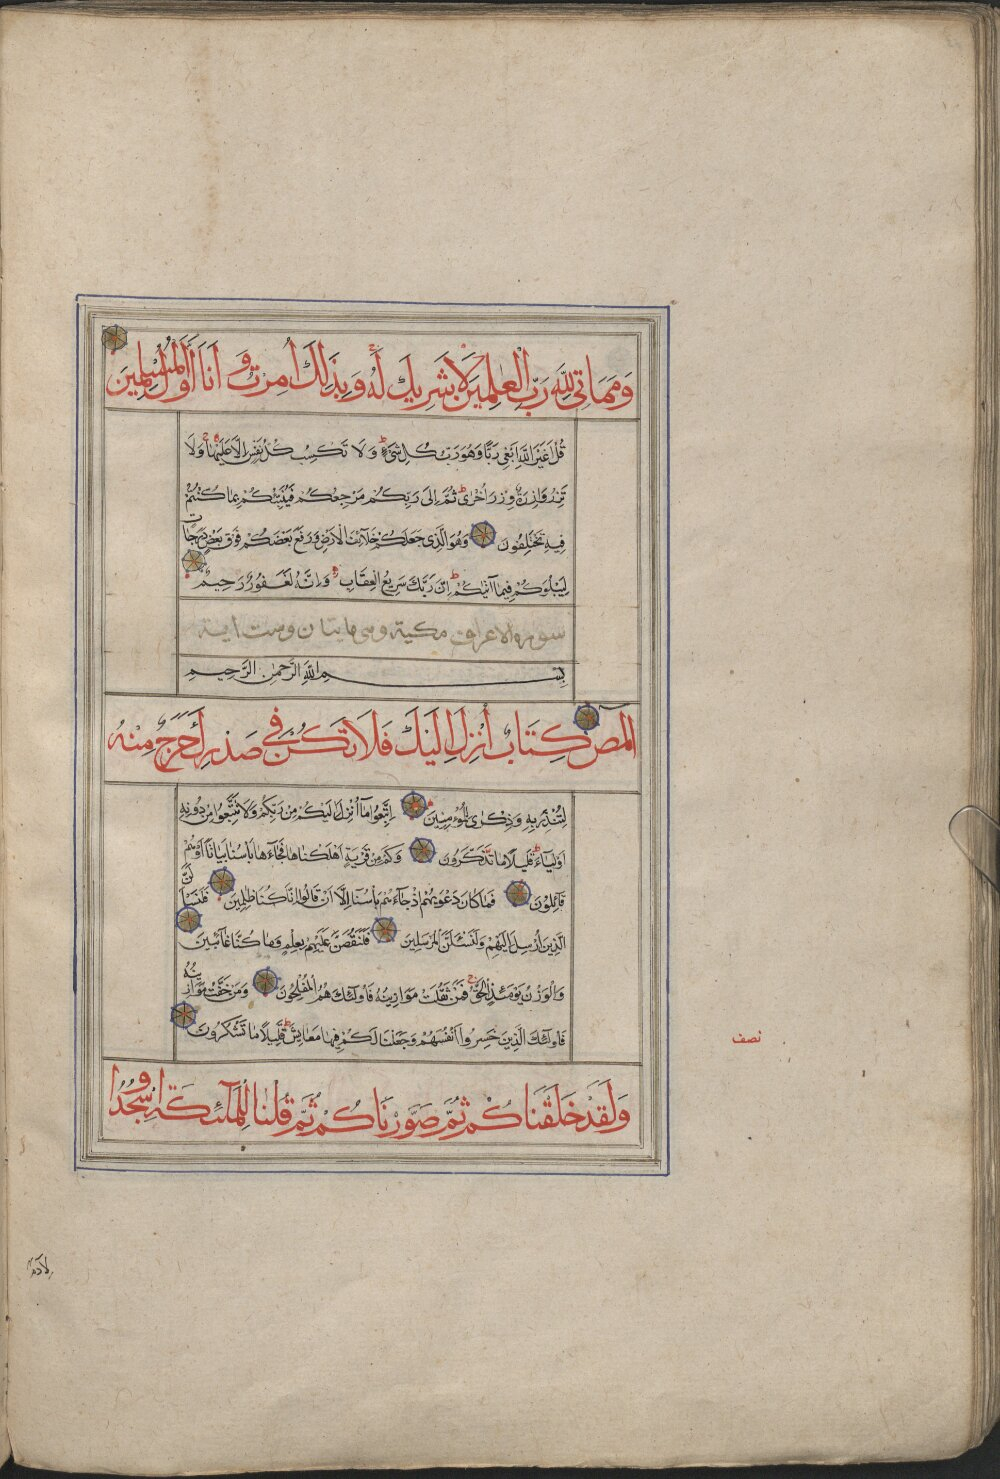 وَمَمَاتِي لِلَّهِ رَبِّ الْعٰلَمِينَ لَا شَرِيكَ لَهُ وَبِذٰلِكَ أُمِرْتُ وَأَنَا أَوَّلُ الْمُسْلِمِينَ
قُلْ أَغَيْرَ اللَّهِ أَبْغِي رَبًّا وَهُوَ رَبُّ كُلِّ شَيْءٍ وَلَا تَكْسِبُ كُلُّ نَفْسٍ إِلَّا عَلَيْهَا وَلَا
تَزِرُ وَازِرَةٌ وِزْرَ أُخْرَى ثُمَّ إِلَى رَبِّكُمْ مَرْجِعُكُمْ فَيُنَبِّئُكُمْ بِمَا كُنْتُمْ
فِيهِ تَخْتَلِفُونَ وَهُوَ الَّذِي جَعَلَكُمْ خَلَائِفَ الْأَرْضِ وَرَفَعَ بَعْضَكُمْ فَوْقَ بَعْضٍ دَرَجَاتٍ
لِيَبْلُوَكُمْ فِيمَا آتٰيكُمْ إِنَّ رَبَّكَ سَرِيعُ الْعِقَابِ وَإِنَّهُ لَغَفُورٌ رَحِيمٌ
سورة الاعراف مكية وهي مايتان وست اية
بِسْمِ اللَّهِ الرَّحْمٰنِ الرَّحِيمِ
الٓمٓصٓ كِتَابٌ أُنْزِلَ إِلَيْكَ فَلَا تَكُنْ فِي صَدْرِكَ حَرَجٌ مِنْهُ
لِتُنْذِرَ بِهِ وَذِكْرَى لِلْمُؤْمِنِينَ اِتَّبِعُوا مَا أُنْزِلَ إِلَيْكُمْ مِنْ رَبِّكُمْ وَلَا تَتَّبِعُوا مِنْ دُونِهِ
أَوْلِيَاءَ قَلِيلًا مَا تَذَكَّرُونَ وَكَمْ مِنْ قَرْيَةٍ أَهْلَكْنَاهَا فَجَاءَهَا بَأْسُنَا بَيَاتًا أَوْ هُمْ
قَائِلُونَ فَمَا كَانَ دَعْوٰيهُمْ إِذْ جَاءَهُمْ بَأْسُنَا إِلَّا أَنْ قَالُوا إِنَّا كُنَّا ظَالِمِينَ فَلَنَسْأَلَنَّ
الَّذِينَ أُرْسِلَ إِلَيْهِمْ وَلَنَسْئَلَنَّ الْمُرْسَلِينَ فَلَنَقُصَّنَّ عَلَيْهِمْ بِعِلْمٍ وَمَا كُنَّا غَائِبِينَ
وَالْوَزْنُ يَوْمَئِذٍ الْحَقُّ فَمَنْ ثَقُلَتْ مَوَازِينُهُ فَأُولٰئِكَ هُمُ الْمُفْلِحُونَ وَمَنْ خَفَّتْ مَوَازِينُهُ
فَأُولٰئِكَ الَّذِينَ خَسِرُوا أَنْفُسَهُمْ وَجَعَلْنَا لَكُمْ فِيهَا مَعَايِشَ قَلِيلًا مَا تَشْكُرُونَ
نصف
وَلَقَدْ خَلَقْنَاكُمْ ثُمَّ صَوَّرْنَاكُمْ ثُمَّ قُلْنَا لِلْمَلٰئِكَةِ اسْجُدُوا
لِآدَمَ